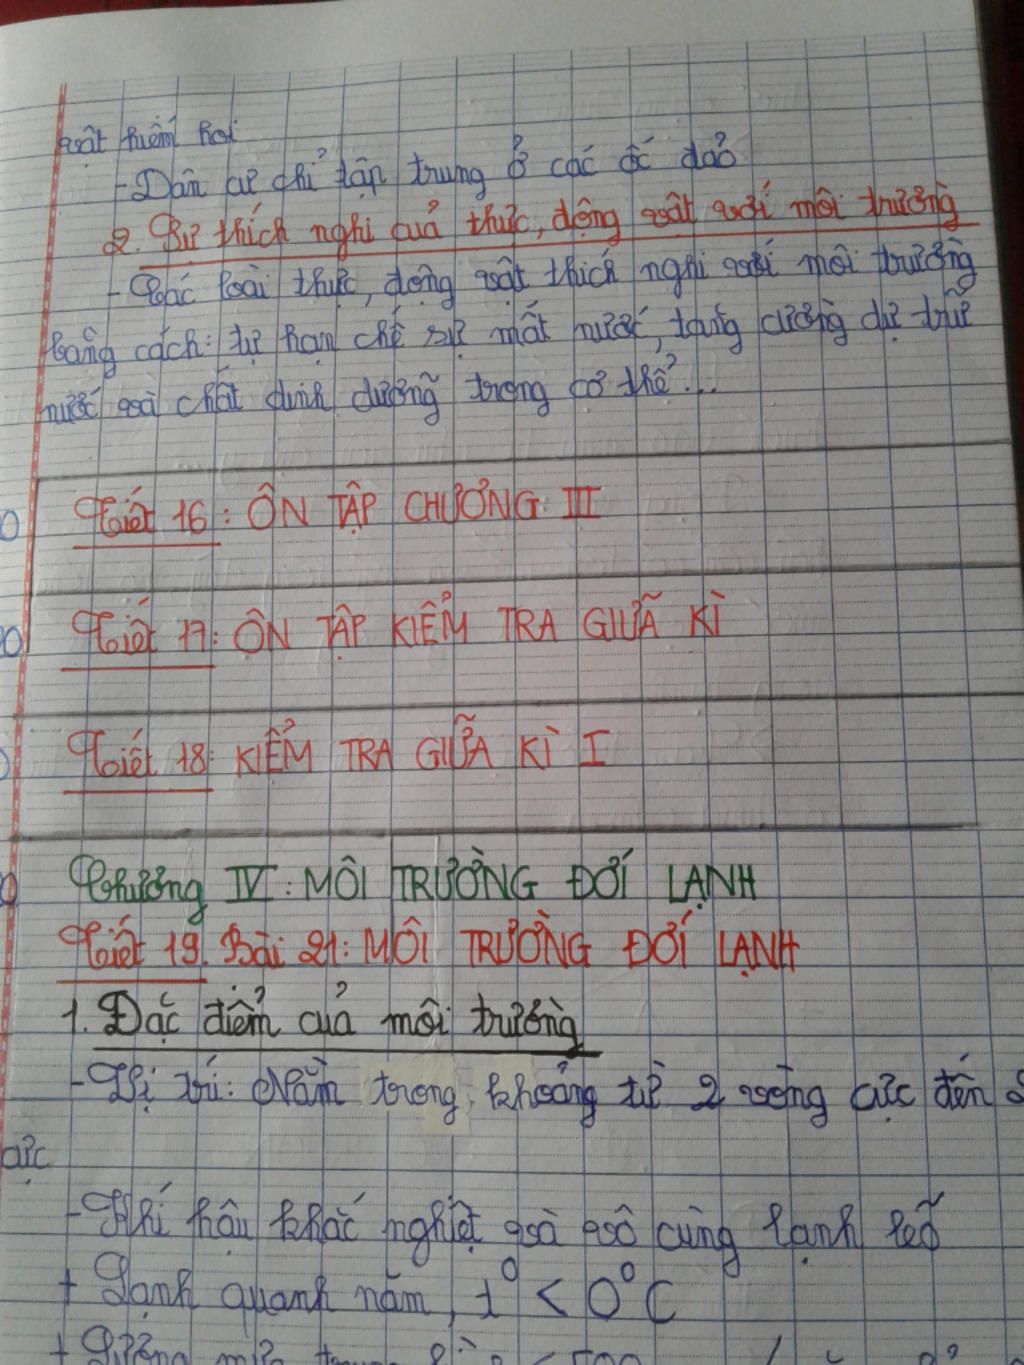 vật hiếm hoi
- Dân cư chỉ tập trung ở các ốc đảo
2. Sự thích nghi của thực, động vật với môi trường
- Các loài thực, động vật thích nghi với môi trường
bằng cách: tự hạn chế sự mất nước, tăng cường dự trữ
nước và chất dinh dưỡng trong cơ thể...
Tiết 16: ÔN TẬP CHƯƠNG III
Tiết 17: ÔN TẬP KIỂM TRA GIỮA KÌ
Tiết 18: KIỂM TRA GIỮA KÌ I
Chương IV: MÔI TRƯỜNG ĐỚI LẠNH
Tiết 19. Bài 21: MÔI TRƯỜNG ĐỚI LẠNH
1. Đặc điểm của môi trường
- Vị trí: Nằm trong khoảng từ 2 vòng cực đến
cực
- Khí hậu khắc nghiệt và vô cùng lạnh lẽo
+ Lạnh quanh năm, t° < 0°C
+ Lượng mưa